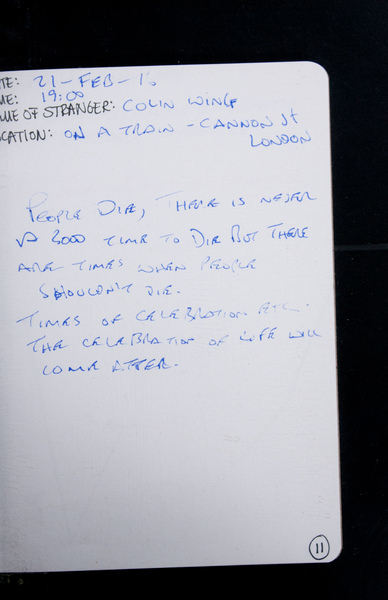 TE: 21-FEB-16
ME: 19:00
ME OF STRANGER: COLIN WINGE
CATION: ON A TRAIN - CANNON St
LONDON
PEOPLE DIE, THERE IS NEVER
GOOD TIME TO DIE BUT THERE
ARE TIMES WHEN PEOPLE
SHOULDN'T DIE.
TIMES OF CELEBRATION ETC.
THE CELEBRATION OF LIFE WILL
COME AFTER.
11